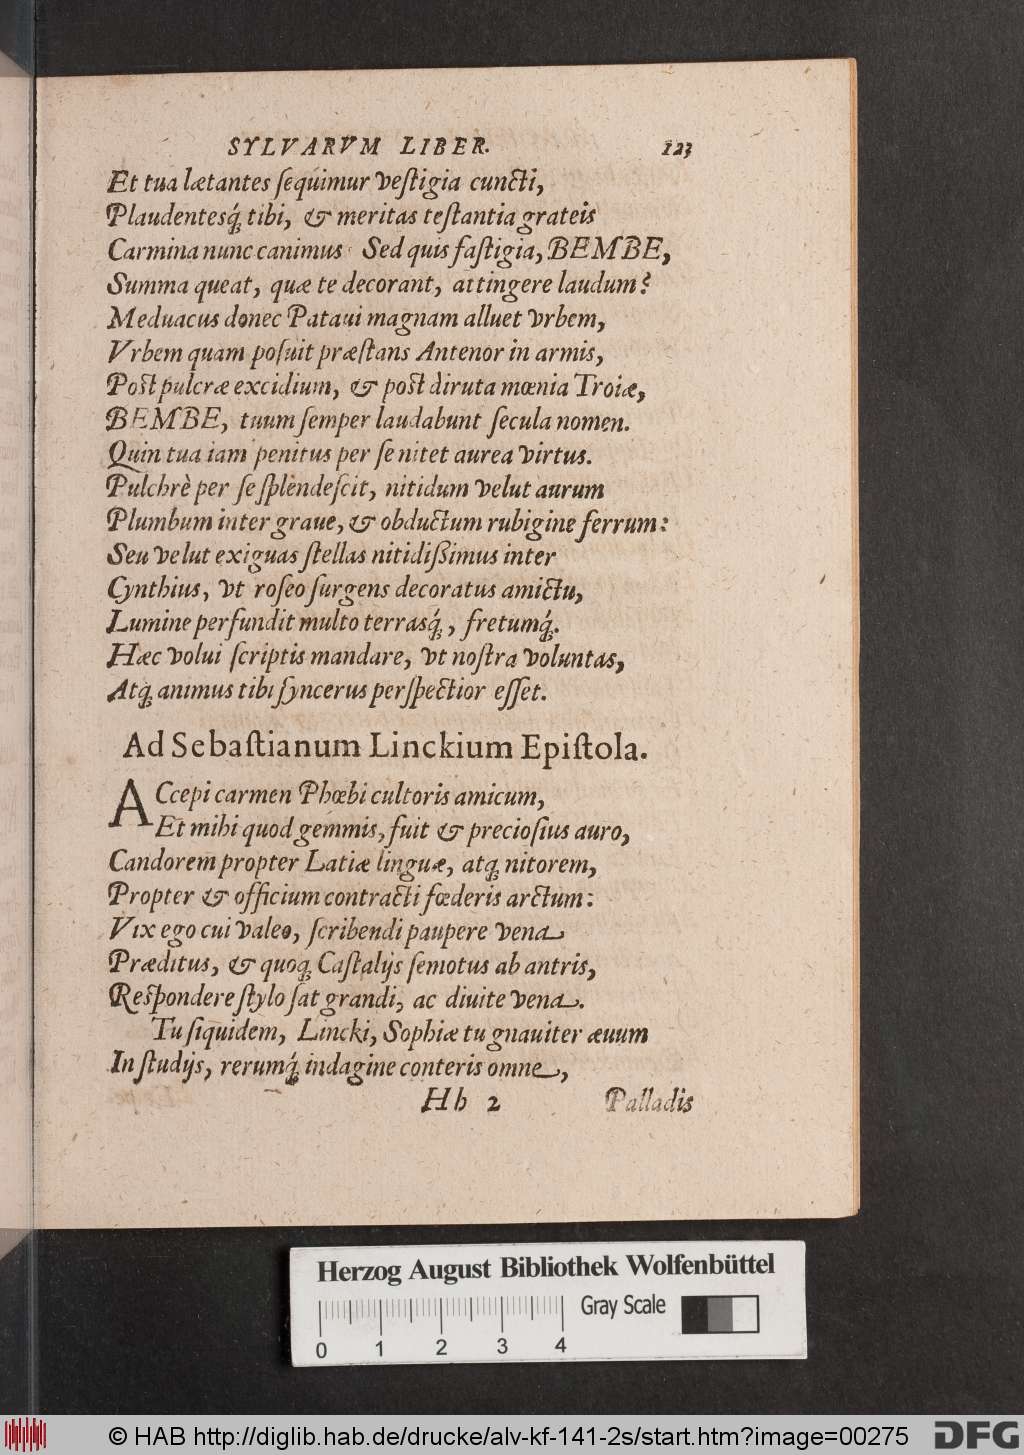 SYLVARVM LIBER. 123
Et tua lætantes ſequimur veſtigia cuncti,
Plaudentesq́; tibi, & meritas teſtantia grateis
Carmina nunc canimus. Sed quis faſtigia, BEMBE,
Summa queat, quæ te decorant, attingere laudum?
Meduacus donec Pataui magnam alluet vrbem,
Vrbem quam poſuit præſtans Antenor in armis,
Poſt pulcræ excidium, & poſt diruta mœnia Troiæ,
BEMBE, tuum ſemper laudabunt ſecula nomen.
Quin tua iam penitus per ſe nitet aurea virtus.
Pulchrè per ſe ſplendeſcit, nitidum velut aurum
Plumbum inter graue, & obductum rubigine ferrum:
Seu velut exiguas ſtellas nitidißimus inter
Cynthius, vt roſeo ſurgens decoratus amictu,
Lumine perfundit multo terrasq́;, fretumq́;.
Hæc volui ſcriptis mandare, vt noſtra voluntas,
Atq; animus tibi ſyncerus perſpectior eſſet.
Ad Sebaſtianum Linckium Epiſtola.
ACcepi carmen Phœbi cultoris amicum,
Et mihi quod gemmis, fuit & precioſius auro,
Candorem propter Latiæ linguæ, atq; nitorem,
Propter & officium contracti fœderis arctum:
Vix ego cui valeo, ſcribendi paupere vena
Præditus, & quoq; Caſtalijs ſemotus ab antris,
Reſpondere ſtylo ſat grandi, ac diuite vena.
Tu ſiquidem, Lincki, Sophiæ tu gnauiter æuum
In ſtudijs, rerumq́; indagine conteris omne,
Hh 2 Palladis
Herzog August Bibliothek Wolfenbüttel
Gray Scale
0 1 2 3 4
© HAB http://diglib.hab.de/drucke/alv-kf-141-2s/start.htm?image=00275 DFG